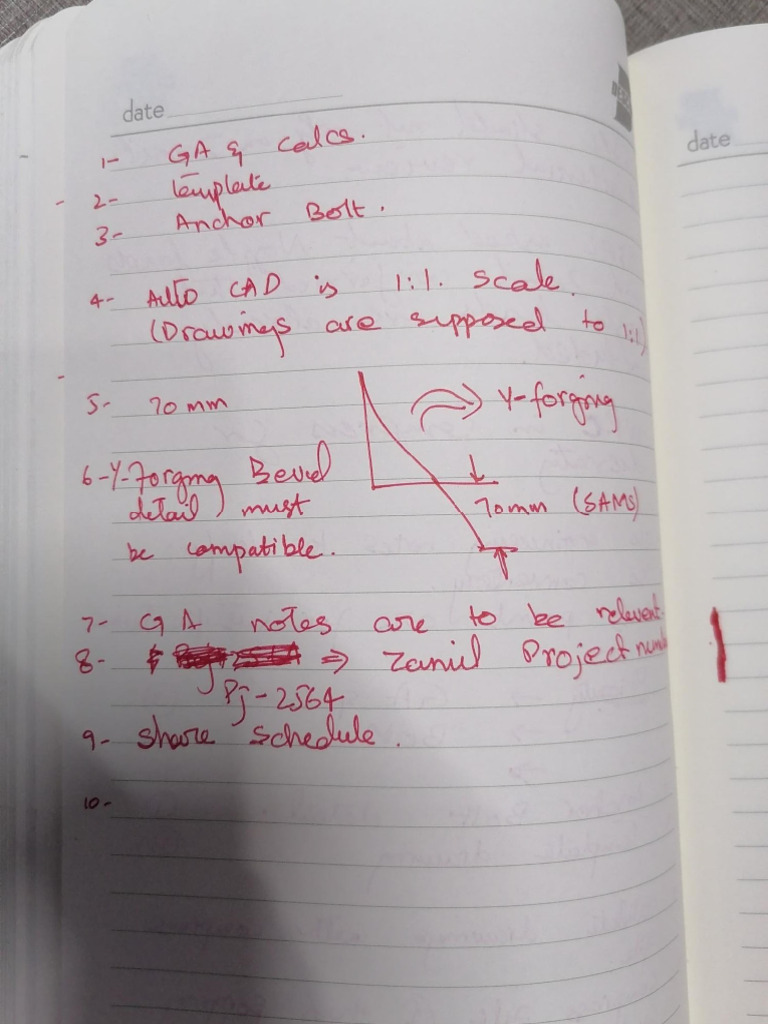 date
date
1- GA & calcs.
2- template
3- Anchor Bolt.
4- Auto CAD is 1:1. scale.
(Drawings are supposed to 1:1)
5- 70 mm
Y-forging
6-Y-Forging Bevel
detail must
be compatible.
70mm (SAMS)
7- GA notes are to be relevent.
8- ⇒ Zamil Project numb
Pj-2564
9- Share schedule.
10-